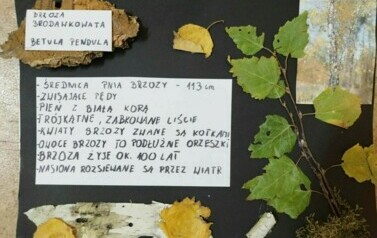 BRZOZA
BRODAWKOWATA
BETULA PENDULA
- ŚREDNICA PNIA BRZOZY - 113 cm
- ZWISAJĄCE PĘDY
- PIEŃ Z BIAŁĄ KORĄ
- TRÓJKĄTNE, ZĄBKOWANE LIŚCIE
- KWIATY BRZOZY ZWANE SĄ KOTKAMI
- OWOCE BRZOZY TO PODŁUŻNE ORZESZKI
- BRZOZA ŻYJE OK. 100 LAT
- NASIONA ROZSIEWANE SĄ PRZEZ WIATR